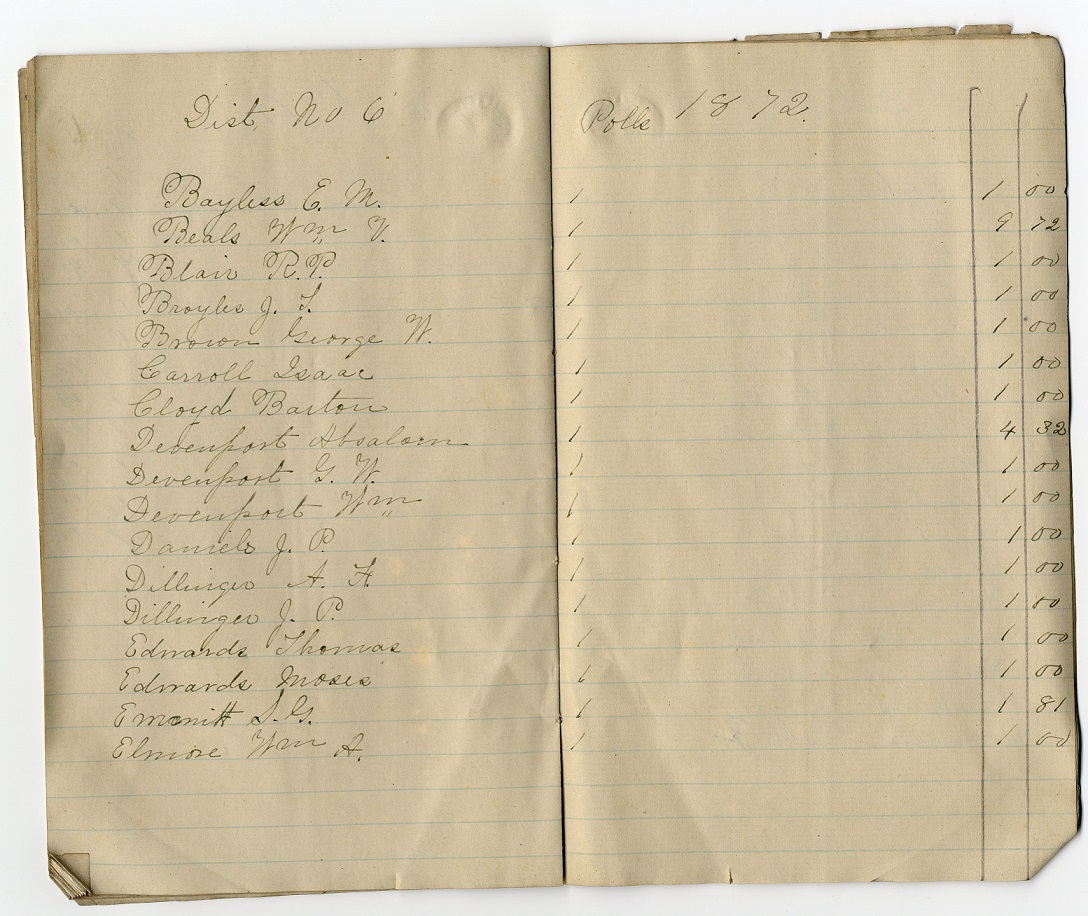 Dist. No 6 Polls 1872.
Bayless E. M. 1 1 00
Beals Wm V. 1 9 72
Blair R. P. 1 1 00
Broyles J. S. 1 1 00
Brown George W. 1 1 00
Carroll Isaac 1 1 00
Cloyd Barton 1 1 00
Devenport Absalom 1 4 32
Devenport G. W. 1 1 00
Devenport Wm 1 1 00
Daniels J. P. 1 1 00
Dillinger A. H. 1 1 00
Dillinger J. P. 1 1 00
Edwards Thomas 1 1 00
Edwards Moses 1 1 00
Emmitt S. G. 1 1 81
Elmore Wm A. 1 1 00